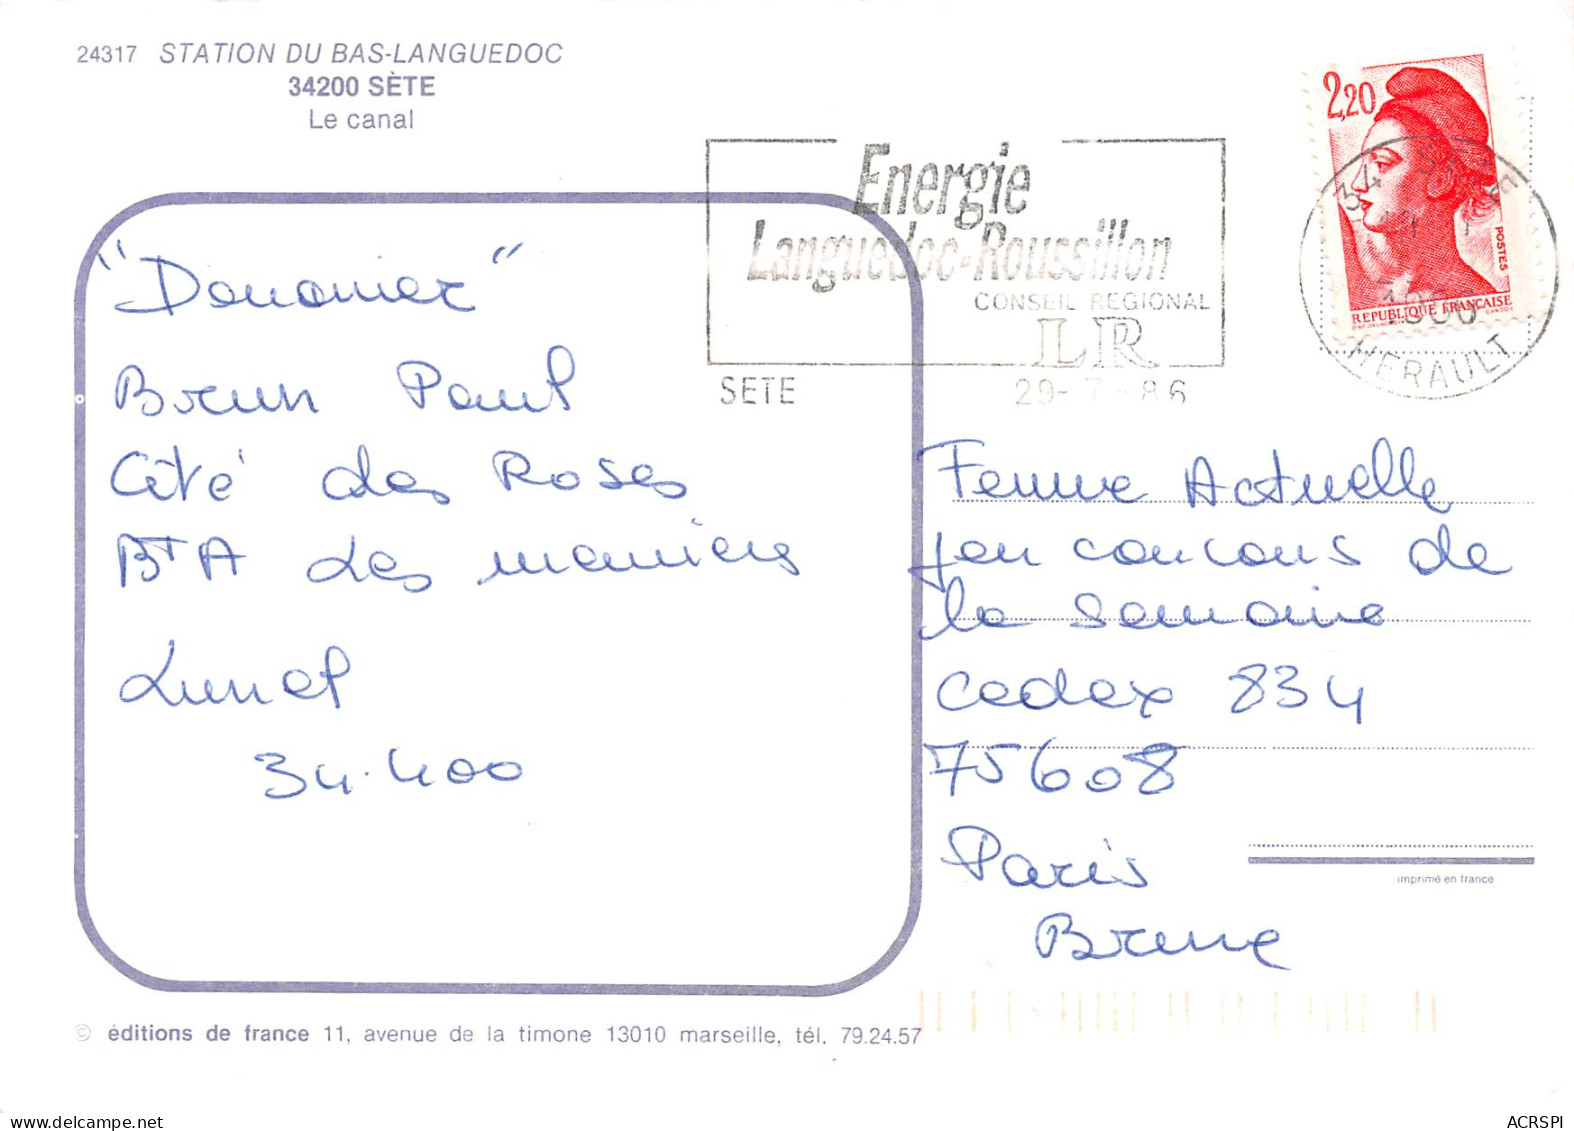 24317 STATION DU BAS-LANGUEDOC
34200 SÈTE
Le canal
2,20
POSTES
REPUBLIQUE FRANÇAISE
Energie
Languedoc-Roussillon
CONSEIL REGIONAL
LR
SETE 29-7-86
34 SETE
1986
HERAULT
"Douanier"
Brun Paul
Cité des Roses
BTA
Lunel
34.400
Femme Actuelle
jeu concours de
la semaine
Cedex 834
75608
Paris
Brune
imprimé en france
© éditions de france 11, avenue de la timone 13010 marseille, tél. 79.24.57
ACRSPI